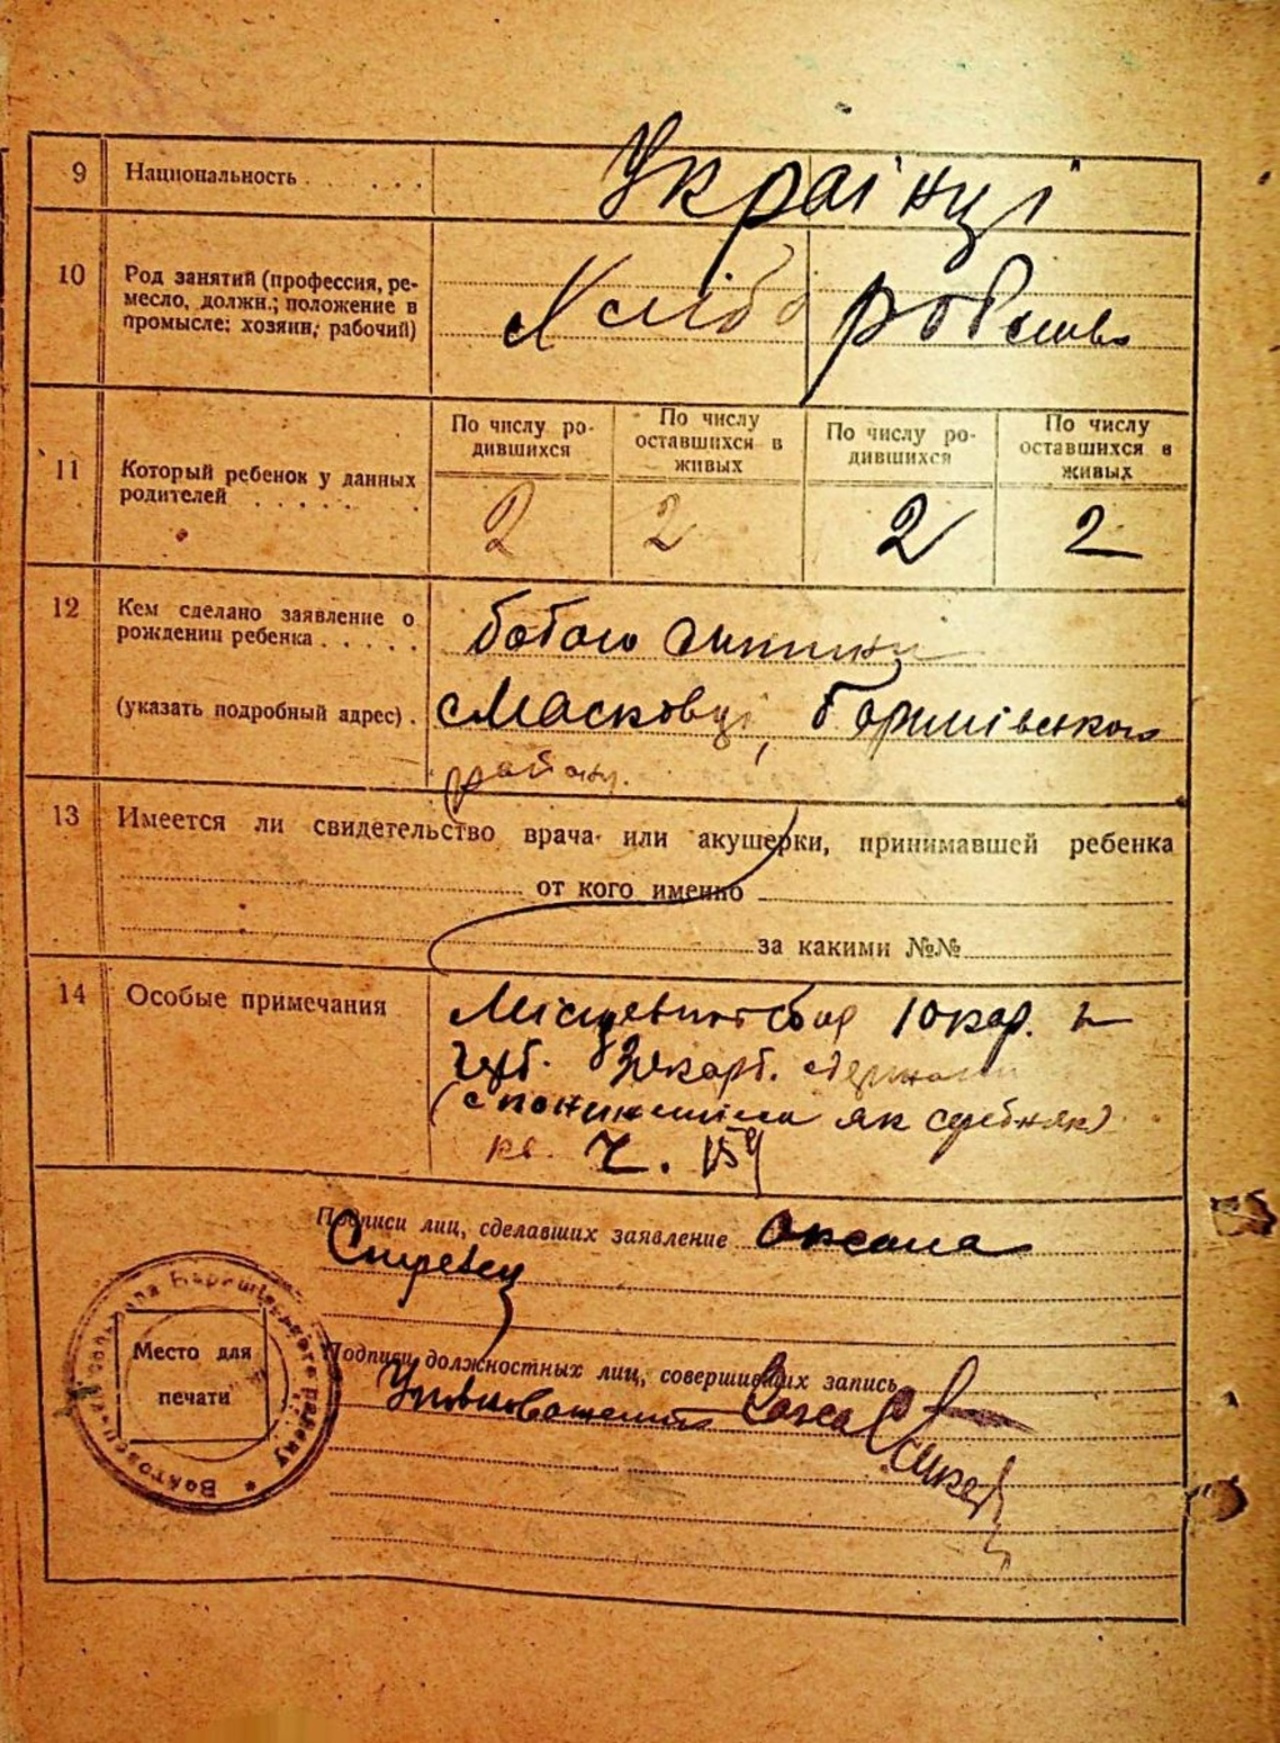 9 Национальность . . . . . . Українці
10 Род занятий (профессия, ре-
месло, должн.; положение в
промысле: хозяин, рабочий)
Хлібо робство
11 Который ребенок у данных
родителей . . . . . .
По числу ро-
дившихся
По числу
оставшихся в
живых
По числу ро-
дившихся
По числу
оставшихся в
живых
2 2 2 2
12 Кем сделано заявление о
рождении ребенка . . . . .
(указать подробный адрес) .
бабою
Масковці, Баришівського
району.
13 Имеется ли свидетельство врача или акушерки, принимавшей ребенка
от кого именно
за какими №№
14 Особые примечания
10 кар.
як середняк)
кв. Ч. 159
Подписи лиц, сделавших заявление Оксана
Подписи должностных лиц, совершивших запись
Уповноважений
Место для
печати